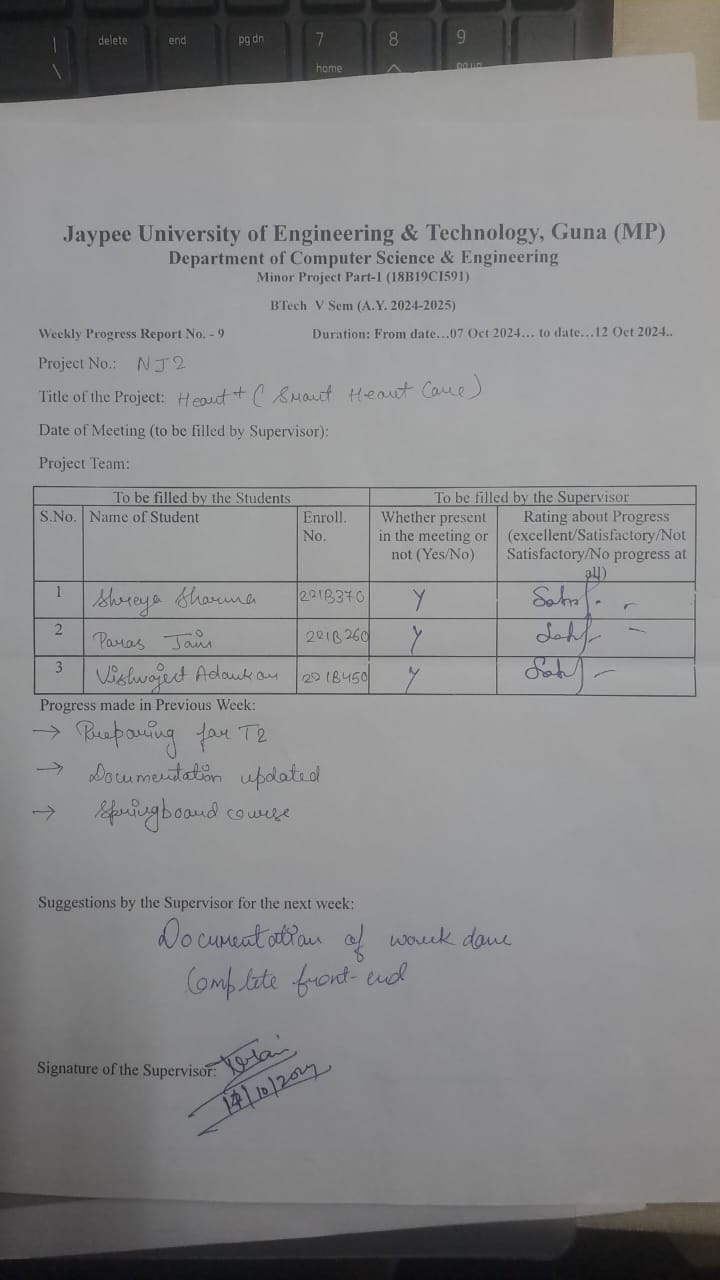 delete end pg dn 7 8 9
home pg up
| \
Jaypee University of Engineering & Technology, Guna (MP)
Department of Computer Science & Engineering
Minor Project Part-I (18B19CI591)
BTech V Sem (A.Y. 2024-2025)
Weekly Progress Report No. - 9 Duration: From date...07 Oct 2024... to date...12 Oct 2024..
Project No.: NJ2
Title of the Project: Heart + ( Smart Heart Care)
Date of Meeting (to be filled by Supervisor):
Project Team:
To be filled by the Students To be filled by the Supervisor
S.No. Name of Student Enroll. No. Whether present in the meeting or not (Yes/No) Rating about Progress (excellent/Satisfactory/Not Satisfactory/No progress at all)
1 Shreya Sharma 221B370 Y Satisf.
2 Paras Jain 221B260 Y Satisf
3 Vishwajeet Adankar 221B450 Y Satisf
Progress made in Previous Week:
→ Preparing for T2
→ Documentation updated
→ Springboard course
Suggestions by the Supervisor for the next week:
Documentation of work done
Complete front-end
Signature of the Supervisor:
14/10/2024